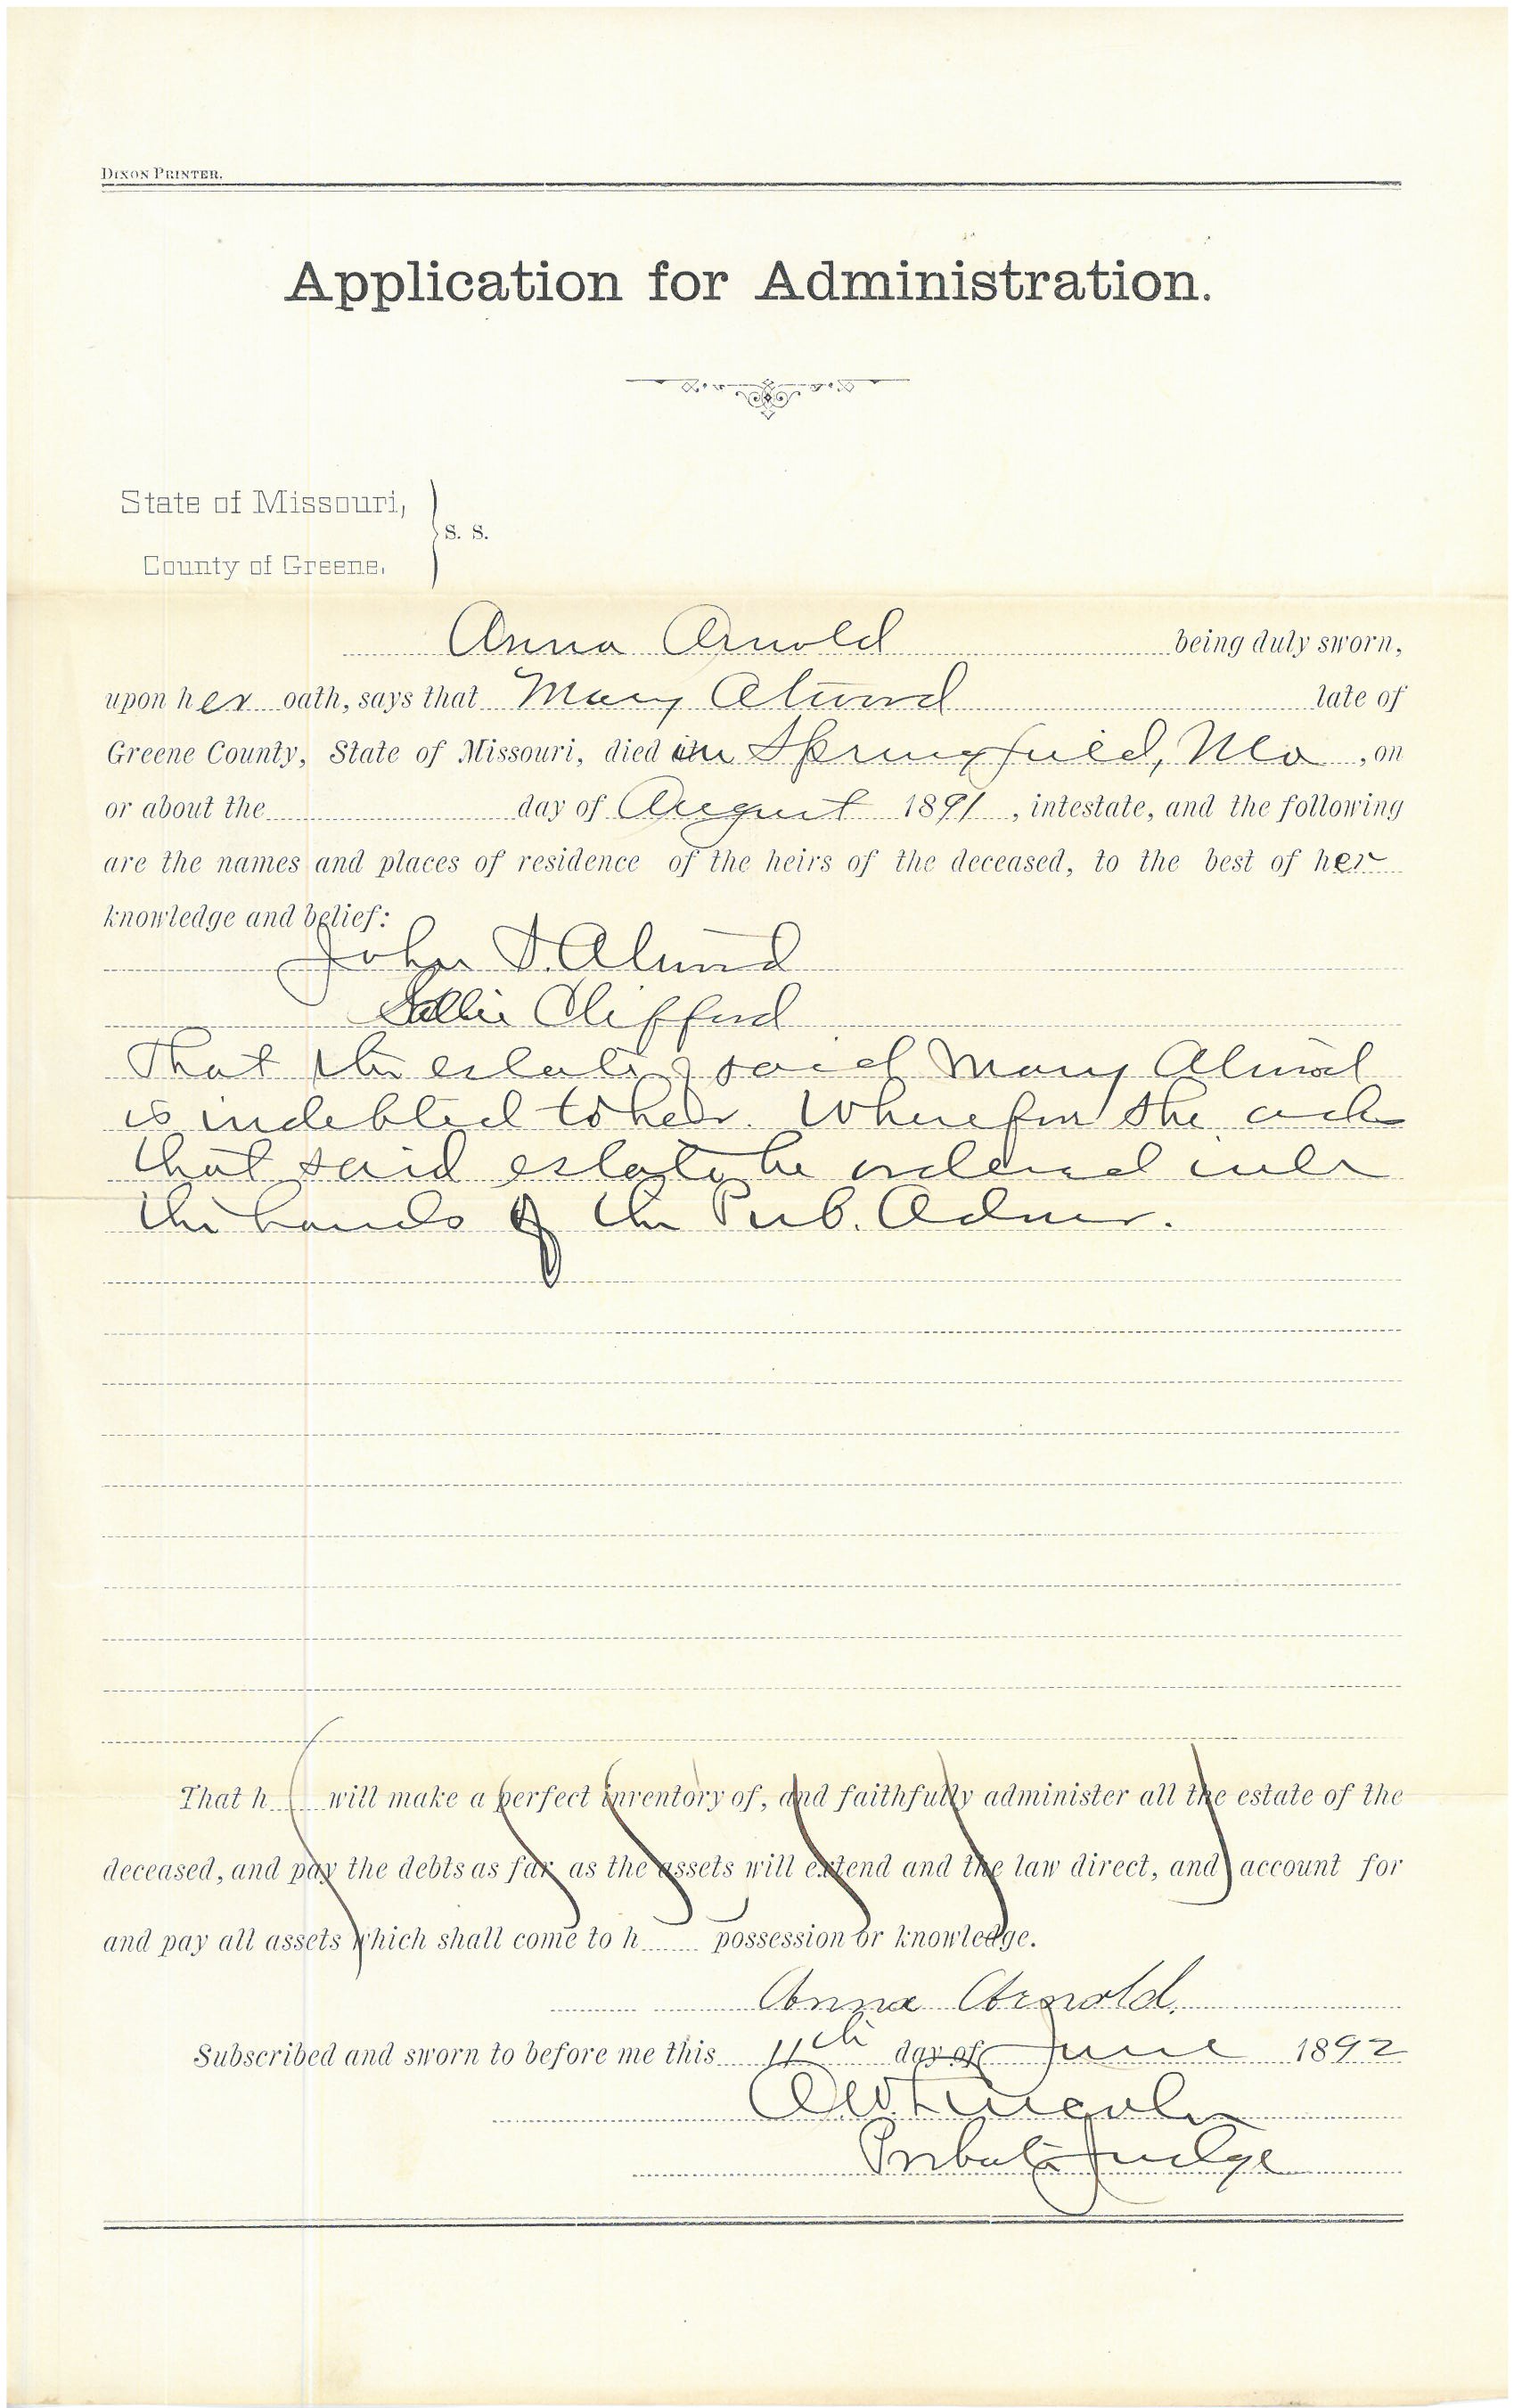 DIXON PRINTER.
Application for Administration.
State of Missouri,
S. S.
County of Greene.
Anna Arnold being duly sworn,
upon her oath, says that Mary Alund late of
Greene County, State of Missouri, died in Springfield, Mo , on
or about the day of August 1891 , intestate, and the following
are the names and places of residence of the heirs of the deceased, to the best of her
knowledge and belief:
John S. Alund
Sallie Clifford
That the estate of said Mary Alund
is indebted to her. Wherefore she asks
that said estate be ordered into
the hands of the Pub. Admr.
That h will make a perfect inventory of, and faithfully administer all the estate of the
deceased, and pay the debts as far as the assets will extend and the law direct, and account for
and pay all assets which shall come to h possession or knowledge.
Anna Arnold.
Subscribed and sworn to before me this 11th day of June 1892
Lincoln
Probate Judge